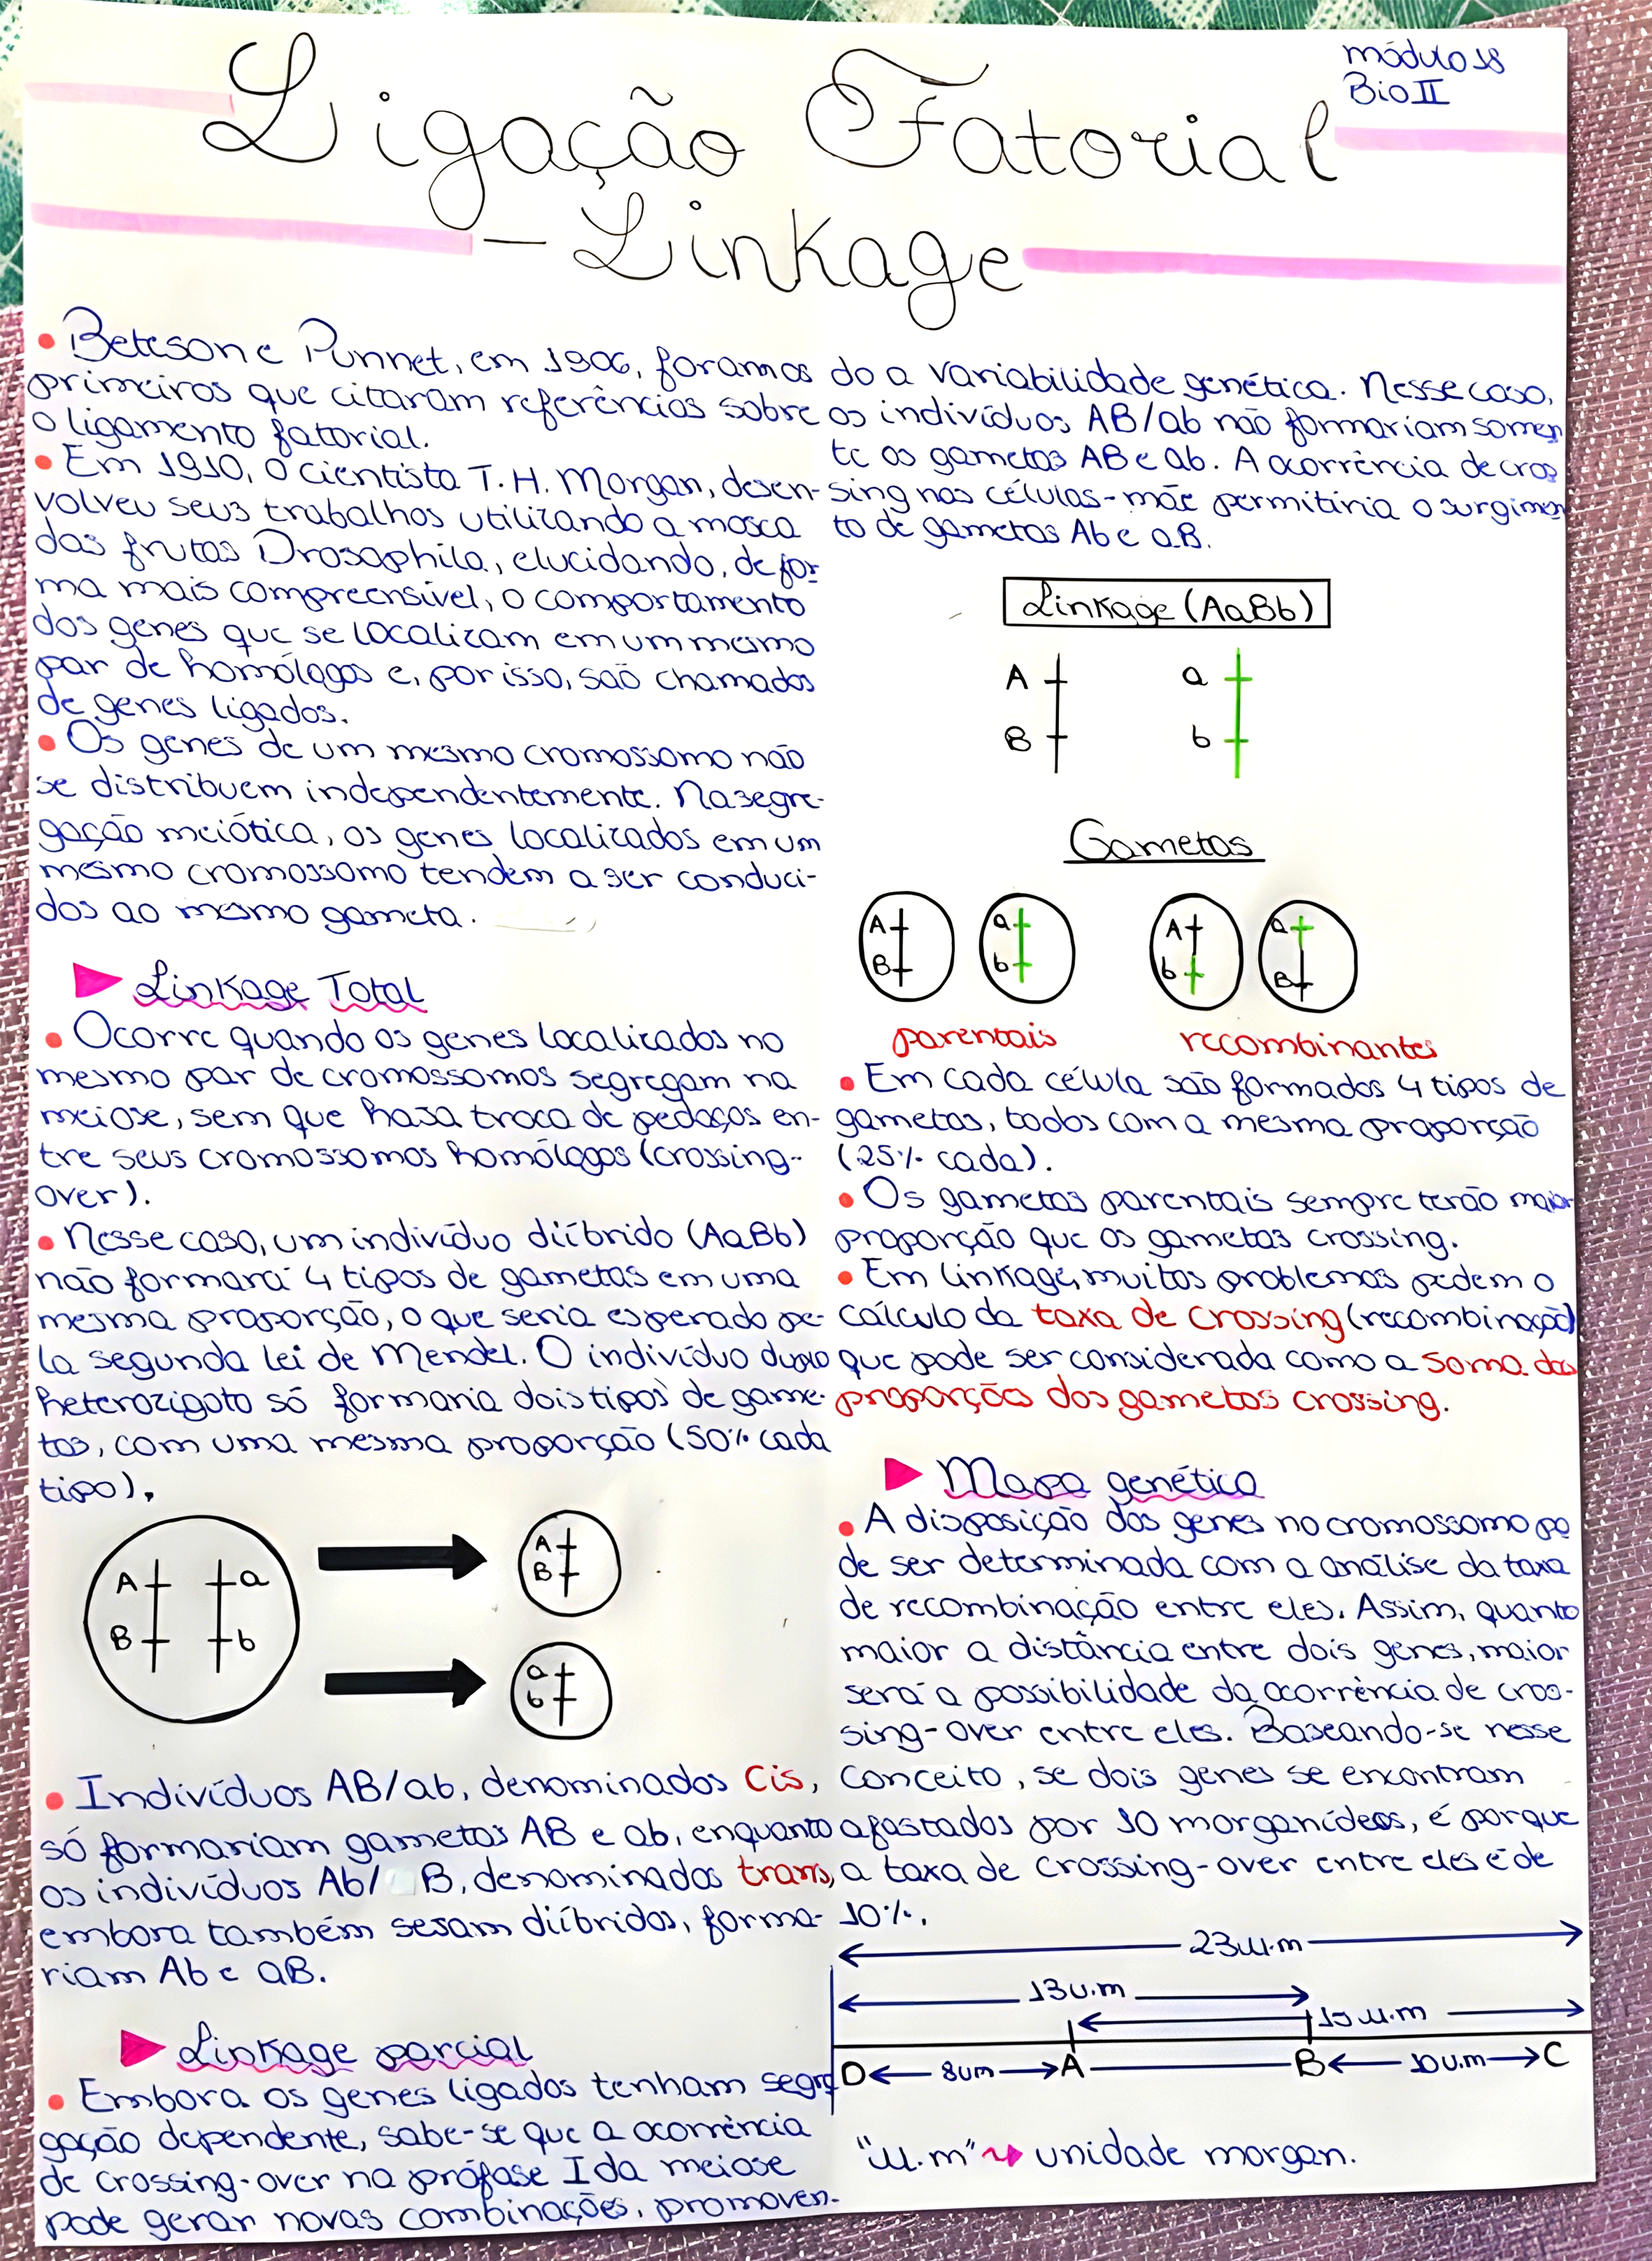 módulo 18
Bio II
Ligação Fatorial
- Linkage
• Betesone Punnet, em 1906, foram os
primeiros que citaram referências sobre
o ligamento fatorial.
• Em 1910, o cientista T. H. Morgan, desen-
volveu seus trabalhos utilizando a mosca
das frutas Drosophila, elucidando, de for
ma mais compreensível, o comportamento
dos genes que se localizam em um mesmo
par de homólogos e, por isso, são chamados
de genes ligados.
• Os genes de um mesmo cromossomo não
se distribuem independentemente. Na segre-
gação meiótica, os genes localizados em um
mesmo cromossomo tendem a ser conduci-
dos ao mesmo gameta.
Linkage Total
• Ocorre quando os genes localizados no
mesmo par de cromossomos segregam na
meiose, sem que haja troca de pedaços en-
tre seus cromossomos homólogos (crossing-
over).
• Nesse caso, um indivíduo diíbrido (AaBb)
não formará 4 tipos de gametas em uma
mesma proporção, o que seria esperado pe-
la segunda lei de Mendel. O indivíduo duplo
heterozigoto só formaria dois tipos de game-
tas, com uma mesma proporção (50% cada
tipo).
A a
B b
A
B
a
b
• Indivíduos AB/ab, denominados Cis,
só formariam gametas AB e ab, enquanto
os indivíduos Ab/ B, denominados trans,
embora também sejam diíbridos, forma-
riam Ab e aB.
Linkage parcial
• Embora os genes ligados tenham segre
gação dependente, sabe-se que a ocorrência
de crossing-over na prófase I da meiose
pode gerar novas combinações, promoven-
do a variabilidade genética. Nesse caso,
os indivíduos AB/ab não formariam somen
te os gametas AB e ab. A ocorrência de cros
sing nas células-mãe permitiria o surgimen
to de gametas Ab e aB.
Linkage (AaBb)
A a
B b
Gametas
A a A a
B b b B
parentais recombinantes
• Em cada célula são formados 4 tipos de
gametas, todos com a mesma proporção
(25% cada).
• Os gametas parentais sempre terão maior
proporção que os gametas crossing.
• Em linkage, muitos problemas pedem o
cálculo da taxa de crossing (recombinação)
que pode ser considerada como a soma das
proporções dos gametas crossing.
Mapa genético
• A disposição dos genes no cromossomo po
de ser determinada com a análise da taxa
de recombinação entre eles. Assim, quanto
maior a distância entre dois genes, maior
será a possibilidade da ocorrência de cros-
sing-over entre eles. Baseando-se nesse
conceito, se dois genes se encontram
afastados por 10 morganídeos, é porque
a taxa de crossing-over entre eles é de
10%.
23u.m
13u.m
15u.m
D 8um A B 10u.m C
"u.m" unidade morgan.